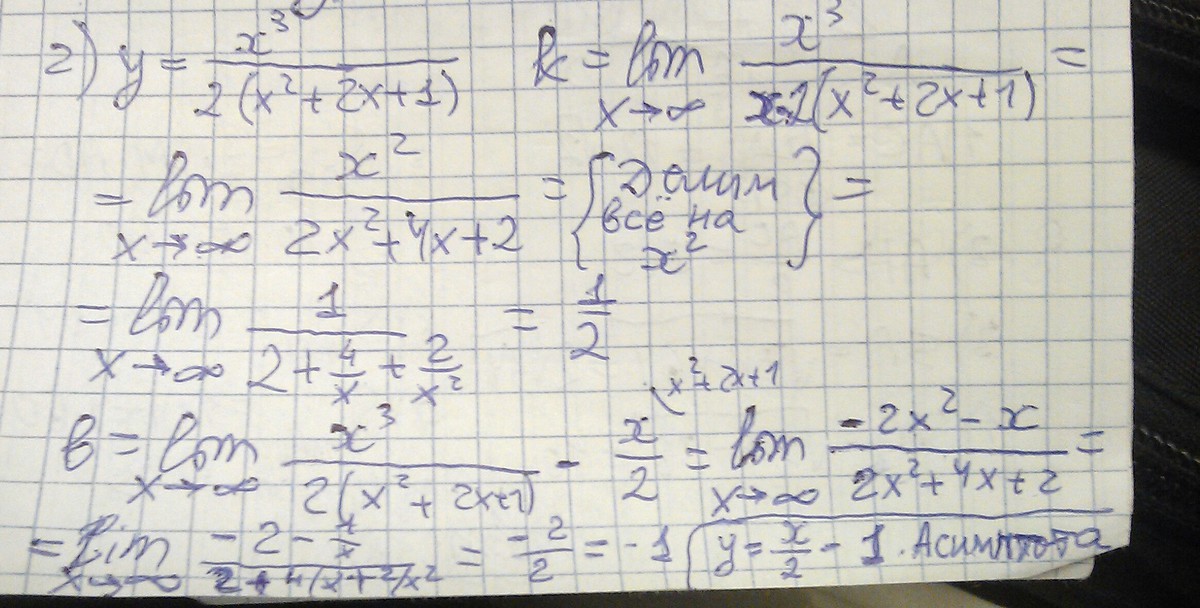 2) y = x³ / 2(x² + 2x + 1)   k = lim x→∞ x³ / x·2(x² + 2x + 1) =
= lim x→∞ x² / 2x² + 4x + 2 = { Делим всё на x² } =
= lim x→∞ 1 / 2 + 4/x + 2/x² = 1/2
x² + 2x + 1
b = lim x→∞ x³ / 2(x² + 2x + 1) - x/2 = lim x→∞ -2x² - x / 2x² + 4x + 2 =
= lim x→∞ -2 - 1/x / 2 + 4/x + 2/x² = -2/2 = -1   y = x/2 - 1. Асимптота